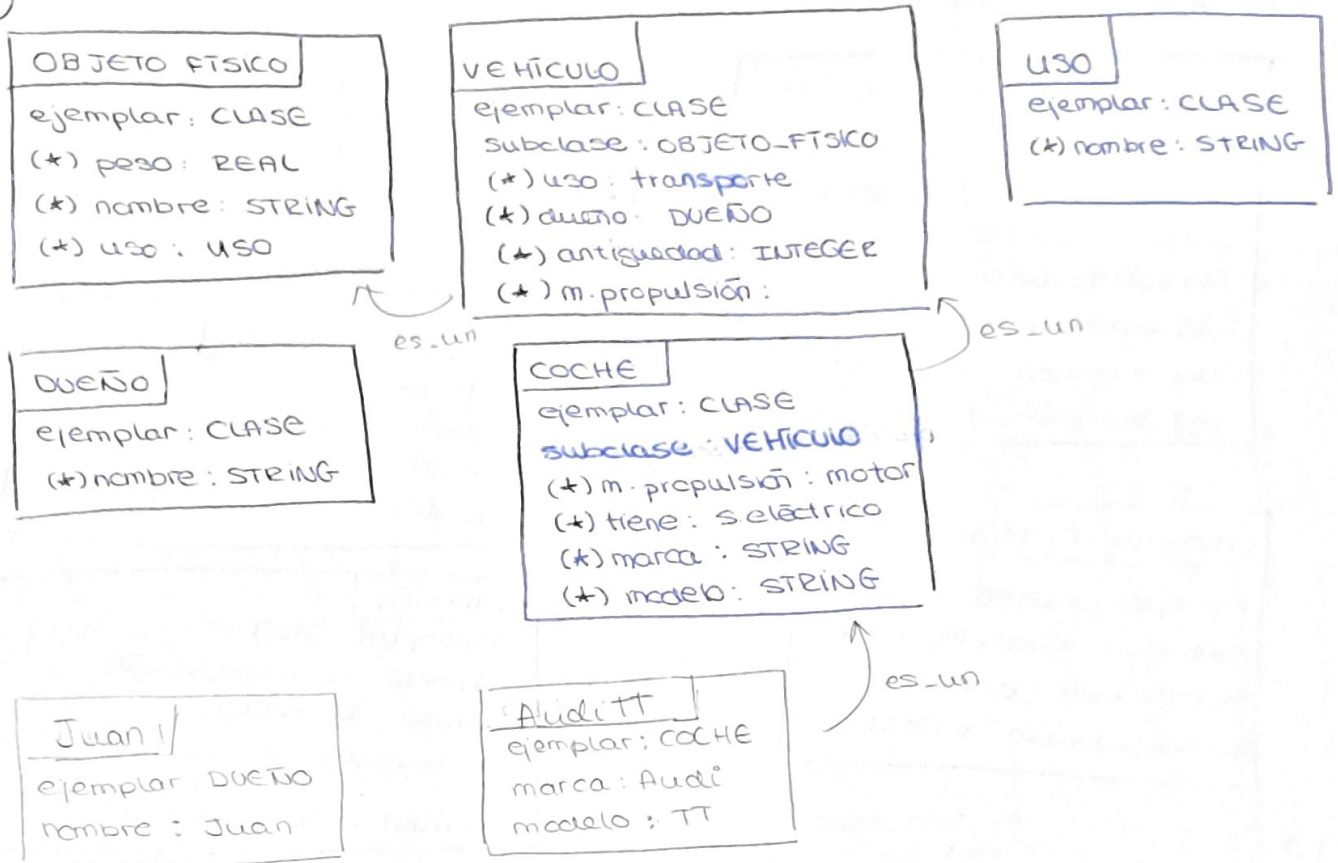 OBJETO FÍSICO
ejemplar: CLASE
(*) peso: REAL
(*) nombre: STRING
(*) uso: USO
VEHÍCULO
ejemplar: CLASE
subclase: OBJETO_FÍSICO
(*) uso: transporte
(*) dueño: DUEÑO
(*) antiguedad: INTEGER
(*) m.propulsión:
USO
ejemplar: CLASE
(*) nombre: STRING
es_un
es_un
DUEÑO
ejemplar: CLASE
(*) nombre: STRING
COCHE
ejemplar: CLASE
subclase: VEHÍCULO
(*) m.propulsión: motor
(*) tiene: s.eléctrico
(*) marca: STRING
(*) modelo: STRING
es_un
Juan
ejemplar: DUEÑO
nombre: Juan
Audi TT
ejemplar: COCHE
marca: Audi
modelo: TT